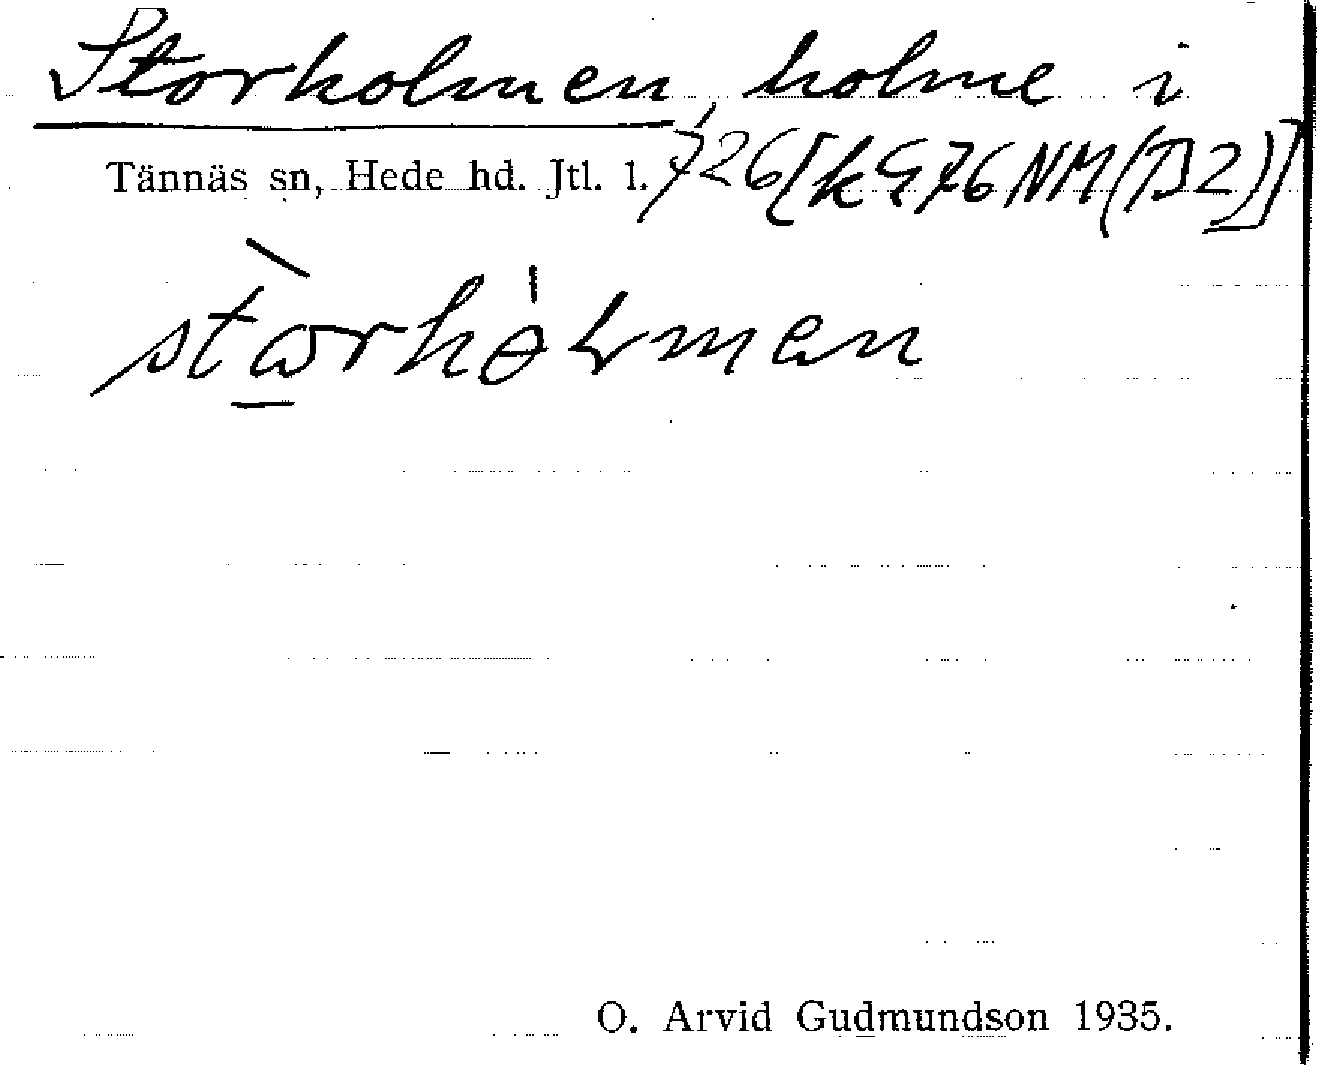 Storholmen, holme i
Tännäs sn, Hede hd. Jtl. l. 726 [k 976 NM (B2)]
O. Arvid Gudmundson 1935.